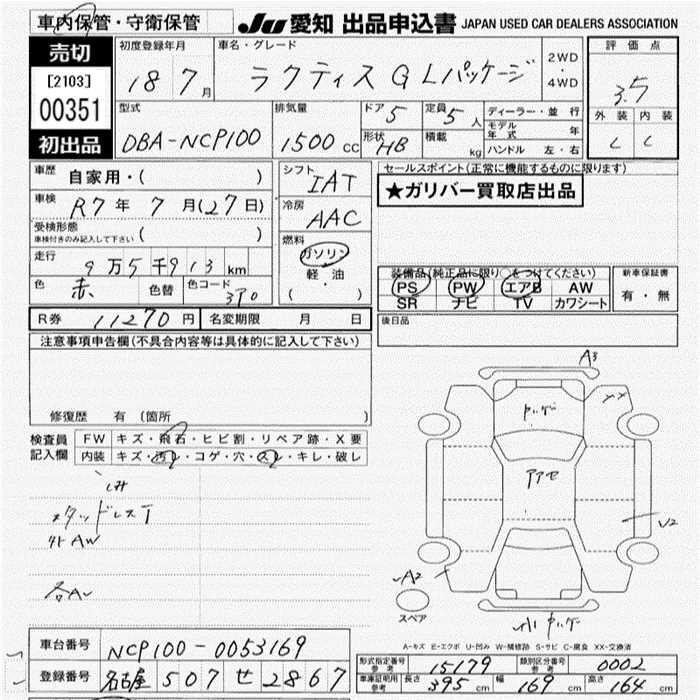 車内保管・守衛保管
JU 愛知 出品申込書 JAPAN USED CAR DEALERS ASSOCIATION
売切
[2103]
00351
初出品
初度登録年月
18 7月
車名・グレード
ラクティス G Lパッケージ
2WD
・
4WD
評価点
3.5
外装 内装
C C
型式
DBA-NCP100
排気量
1500 cc
ドア 5
定員 5人
形状 HB
積載 kg
ディーラー・並行
モデル年式 年
ハンドル 左・右
車歴
自家用・( )
車検
R7年 7月(27日)
受検形態
車検付きのみ記入して下さい ( )
走行
9万5千913km
色 赤 色替 色コード 3P0
シフト
IAT
冷房
AAC
燃料
ガソリン
軽油
( )
セールスポイント(正常に機能するものに限ります)
★ガリバー買取店出品
装備品(純正品に限り○をつけてください)
PS PW エアB AW
SR ナビ TV カワシート
新車保証書
有・無
R券 11270円 名変期限 月 日
後日品
注意事項申告欄(不具合内容等は具体的に記入して下さい)
修復歴 有 (箇所
検査員
記入欄
FW キズ・飛石・ヒビ割・リペア跡・X要
内装 キズ・汚レ・コゲ・穴・スレ・キレ・破レ
スタッドレスT
外AW
各A
A3
XX
アアセ
U2
A2
スペア
A-キズ E-エクボ U-凹み W-補修跡 S-サビ C-腐食 XX-交換済
車台番号 NCP100-0053169
登録番号 名古屋 507 せ 2867
形式指定番号 参考 15179 類別区分番号 参考 0002
車庫証明用 参考 長さ 395cm 幅 169cm 高さ 164cm